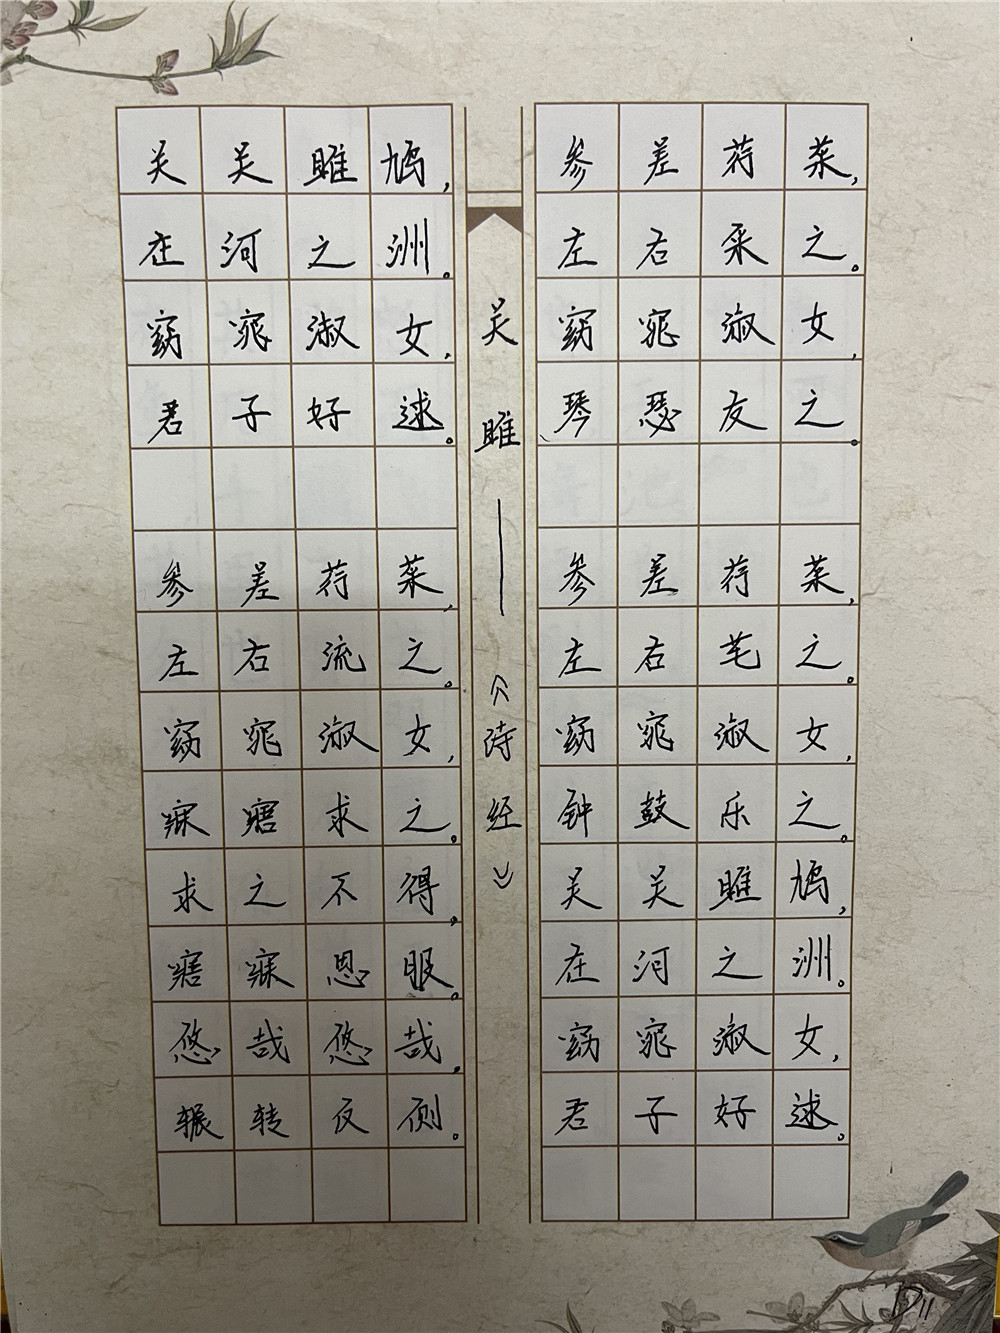 关关雎鸠,
在河之洲。
窈窕淑女,
君子好逑。
参差荇菜,
左右流之。
窈窕淑女,
寐寤求之。
求之不得,
寤寐思服。
悠哉悠哉,
辗转反侧。
关雎——《诗经》
参差荇菜,
左右采之。
窈窕淑女,
琴瑟友之。
参差荇菜,
左右芼之。
窈窕淑女,
钟鼓乐之。
关关雎鸠,
在河之洲。
窈窕淑女,
君子好逑。
D11